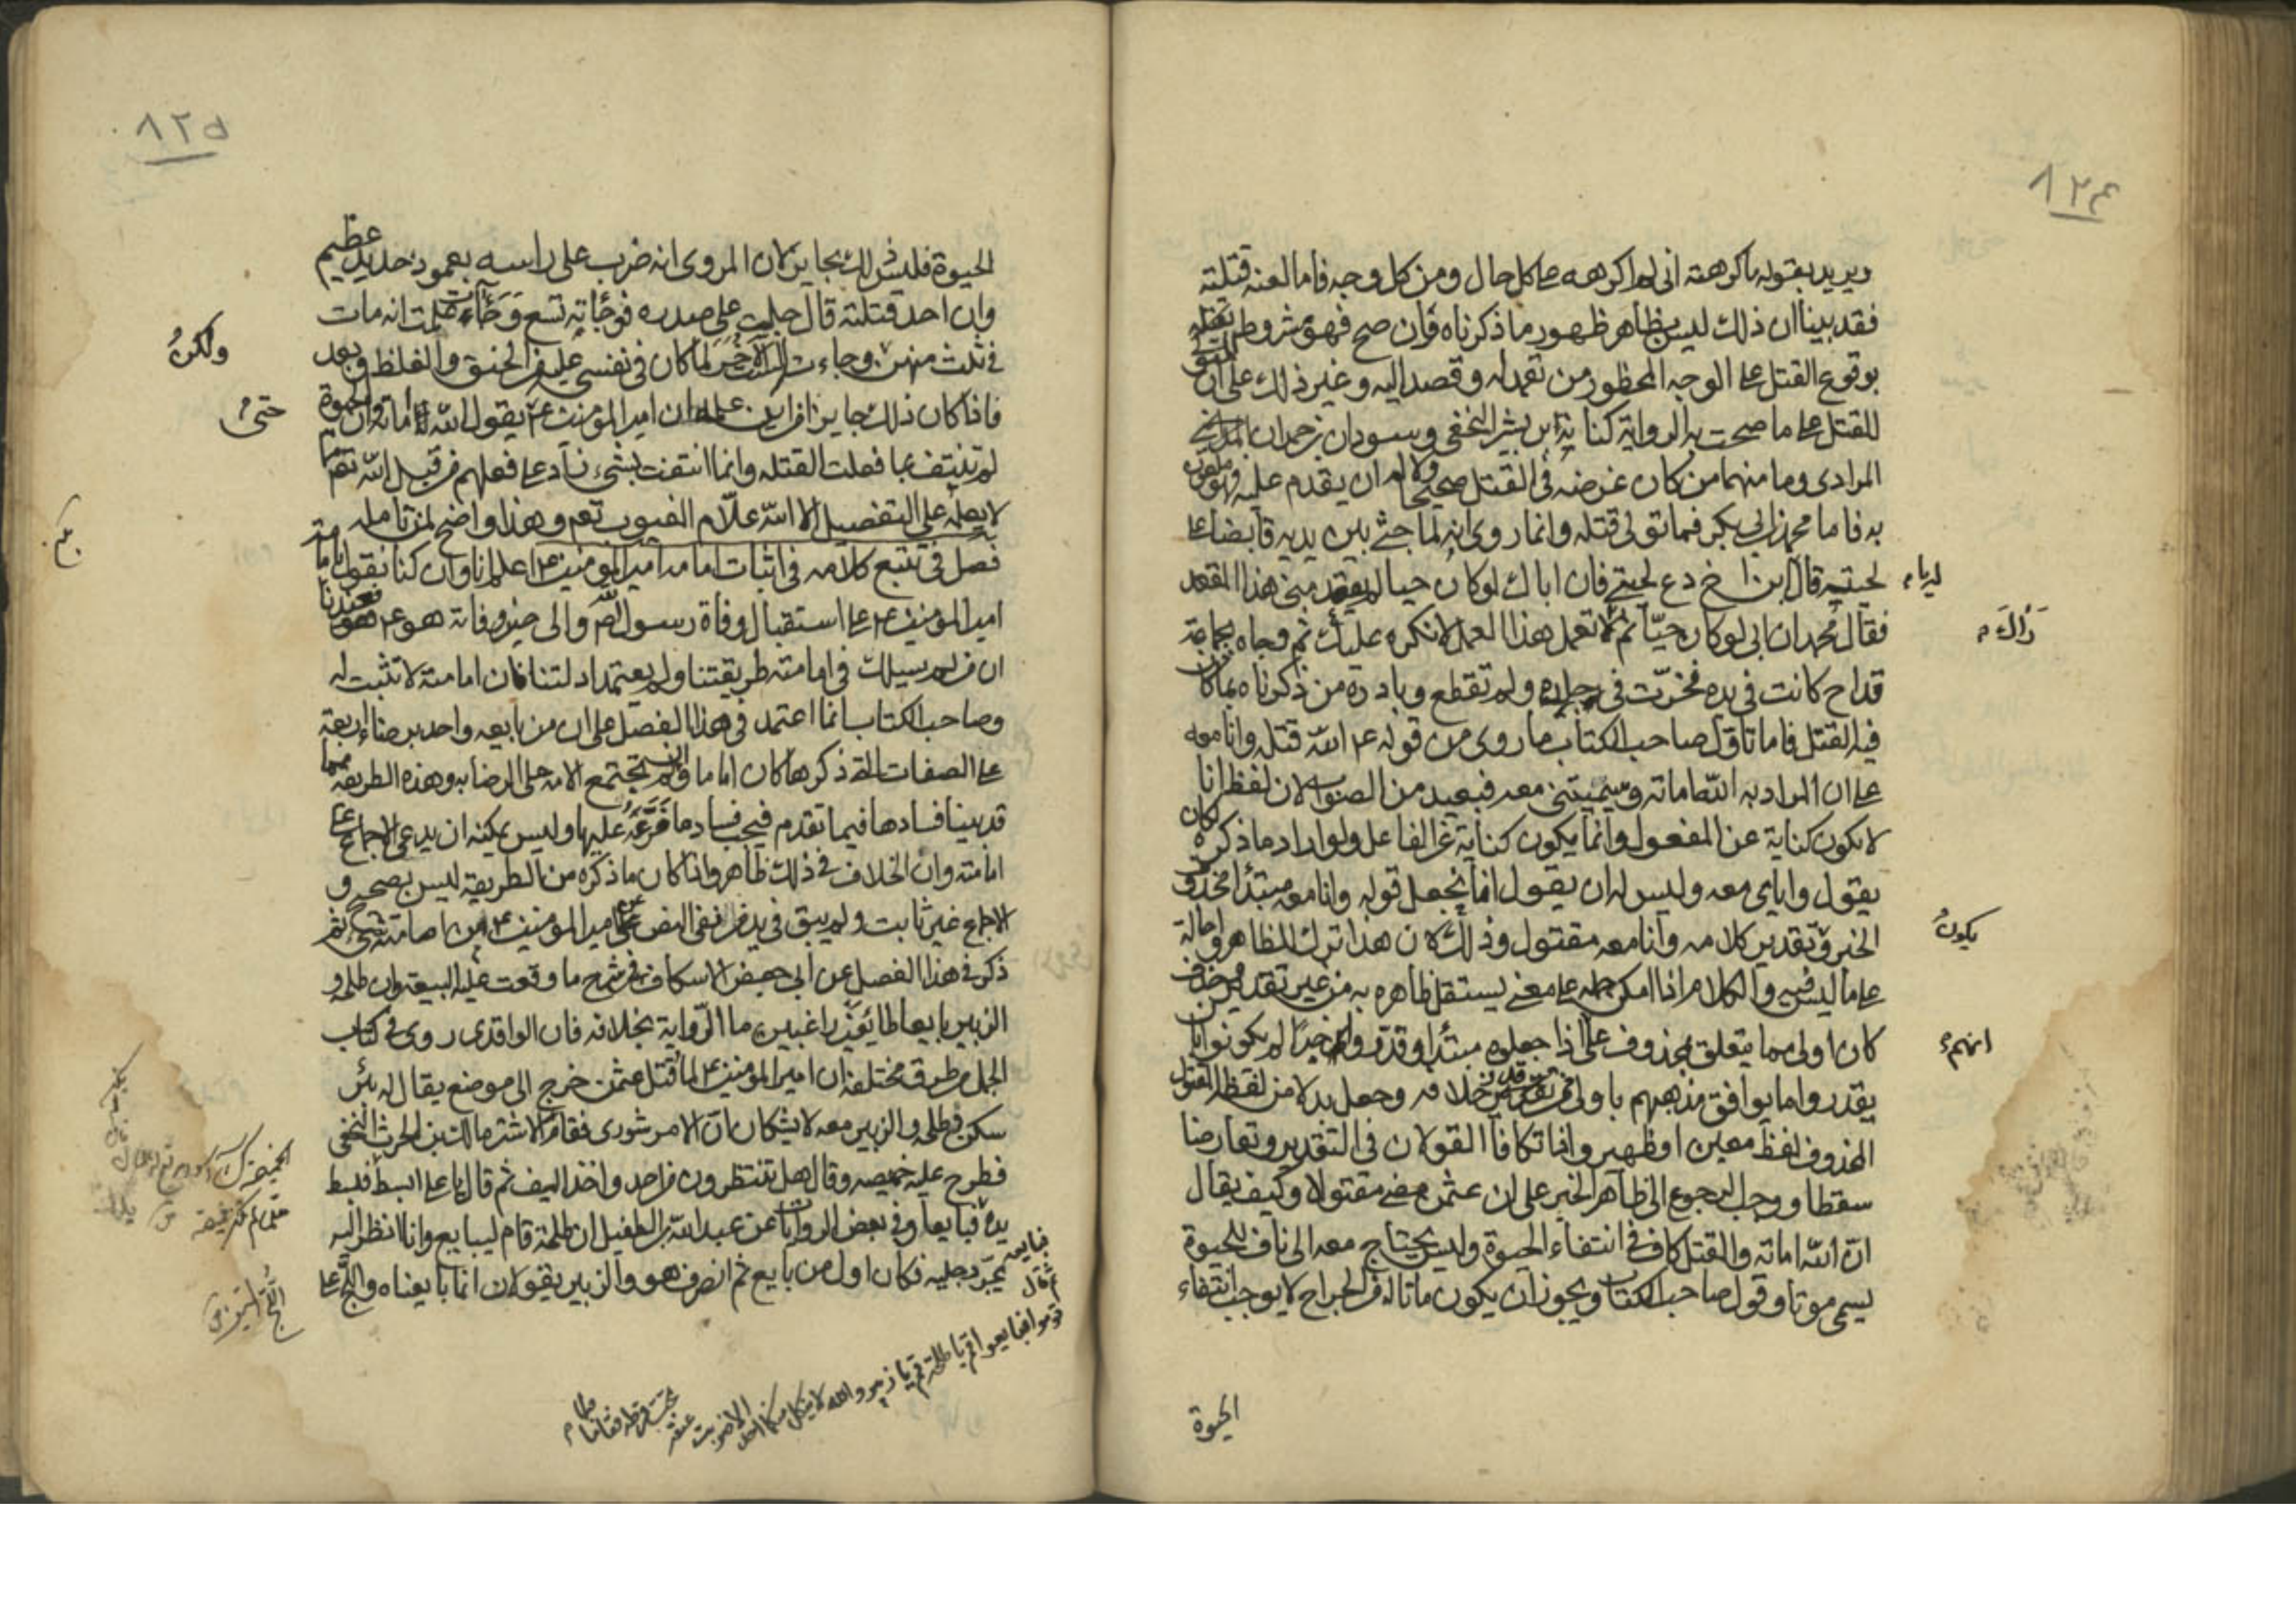 ٨٢٤
ويريد بقوله ما كرهته اني لم اكرهه على كل حال ومن كل وجه فاما لعنه قتلته
فقد بينا ان ذلك ليس بظاهر ظهور ما ذكرناه وان صح فهو مشروط
بوقوع القتل على الوجه المحظور من تعمد له وقصد اليه وغير ذلك على ان المتولى
للقتل على ما صحت به الرواية كنانة ابن بشر النخعي وسودان بن حمران
المرادي وما منهما من كان غرضه في القتل صحيحا ولا له ان يقدم عليه فهو ملعون
به فاما محمد بن ابي بكر فما تولى قتله وانما روى انه لما جثى بين يديه قابضا على
لحيته قال يابن اخي دع لحيتي فان اباك لو كان حيا لم يقعد مني هذا المقعد
فقال محمد ان ابي لو كان حيا ثم تعمل هذا العمل لانكره عليك ثم وجاه بجماعة
قداح كانت في يده فحزت في جلده ولم تقطع وبادره من ذكرناه بما كان
فيه القتل فاما تاول صاحب الكتاب ما روى من قوله ع الله قتله وانا معه
على ان المراد به الله اماته ويميتني معه فبعيد من الصواب لان لفظة انا
لا يكون كناية عن المفعول وانما يكون كناية عن الفاعل ولو اراد ما ذكره لكان
يقول واياي معه وليس له ان يقول انما نجعل قوله وانا معه مبتدأ محذوف
الخبر وتقدير كلامه وانا معه مقتول وذلك ان هذا ترك للظاهر واحالة
على ما ليس فيه والكلام اذا امكن حمله على معنى يستقل ظاهره به من غير تقدير محذوف
كان اولى مما يتعلق بمحذوف على اذا جعلوه مبتدأ وقدروا خبرا لم يكونوا بان
يقدروا ما يوافق مذهبهم باولى ممن قدر خلافه وجعل بدلا من لفظة القتل
المحذوف لفظ معين او ظهير واذا تكافأ القولان في التقدير وتعارضا
سقطا ووجب الرجوع الى ظاهر الخبر على ان عثمن مضى مقتولا وكيف يقال
ان الله اماته والقتل كاف في انتفاء الحيوة وليس يحتاج معه الى ناف للحيوة
يسمى موتا وقول صاحب الكتاب ويجوز ان يكون ما ناله من الجراح لا يوجب انتفاء
الحيوة
ذاك م
يكون
انهم
٨٢٥
الحيوة فليس ذلك بجايز لان المروى انه ضرب على راسه بعمود حديد عظيم
وان احد قتلته قال جلست على صدره فوجأته تسع وجآت علمت انه مات
في ثلث منهن ووجاءت الاخر لما كان في نفسي عليه من الحنق والغلظ وبعد
فاذا كان ذلك جايزا فمن اين علم امير المؤمنين ع يقول الله اماته وان الحيوة
لم تنتف بما فعلت القتله وانما انتفت بشيء زاد على فعلهم من قبل الله تعم
لا يعلمه على التفصيل الا الله علام الغيوب تعم وهذا واضح لمن تامله
فصل في تتبع كلامه في اثبات امامة امير المؤمنين ع اعلم انا وان كنا نقول بامامة
امير المؤمنين ع على استقبال وفاة رسول الله والى حين وفاته هو ع فعندنا
ان من لم يسلك في امامته طريقتنا ولم يعتمد ادلتنا فان امامته لا تثبت له
وصاحب الكتاب انما اعتمد في هذا الفصل على ان من بايعه واحد برضاء اربعة
على الصفات التي ذكرها كان اماما وان لم تجتمع الامة على الرضا به وهذه الطريقة مما
قد بينا فسادها فيما تقدم فيجب فساد ما فرعه عليها وليس يمكنه ان يدعى الاجماع على
امامته وان الخلاف في ذلك ظاهر واذا كان ما ذكره من الطريقة ليس بصحيح و
الاجماع غير ثابت ولم يبق في يد من نفى النص على امير المؤمنين ع من امامته شيء ثم
ذكر في هذا الفصل عن ابي جعفر الاسكافي شرح ما وقعت عليه البيعة وان طلحة و
الزبير بايعا طائعين راغبين ما الرواية بخلافه فان الواقدي روى في كتاب
الجمل من طرق مختلفة ان امير المؤمنين ع لما قتل عثمن خرج الى موضع يقال له بئر
سكن وطلحة والزبير معه لا يشكان ان الامر شورى فقام الاشتر مالك بن الحرث النخعي
فطرح عليه خميصه وقال هل تنتظرون من احد واخذ السيف ثم قال يا على ابسط فبسط
يده فبايعا وفي بعض الروايات عن عبد الله بن الطفيل ان طلحة قام ليبايع وانا انظر اليه
يجر رجليه فكان اول من بايع ثم انصرف هو والزبير يقولان انما بايعناه واللج على
ولكن
حتى م
فبايعه ثم قال
قوموا فبايعوا قم يا طلحة قم يا زبير والله لا ينكل منكما احد الا ضربت عنقه